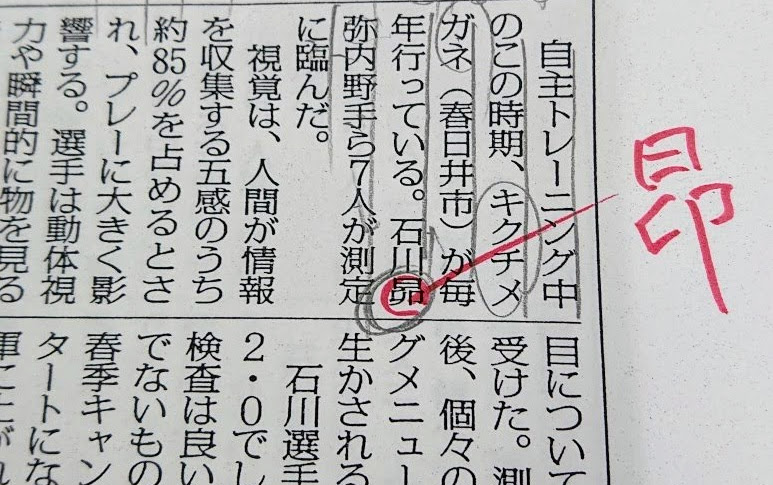 自主トレーニング中
のこの時期、キクチメ
ガネ（春日井市）が毎
年行っている。石川昴
弥内野手ら7人が測定
に臨んだ。
視覚は、人間が情報
を収集する五感のうち
約85%を占めるとさ
れ、プレーに大きく影
響する。選手は動体視
力や瞬間的に物を見る
目について
受けた。測
後、個々の
グメニュー
生かされる
石川選手
2・0でし
検査は良い
でないもの
春季キャン
タートにな
軍に上がれ
昂